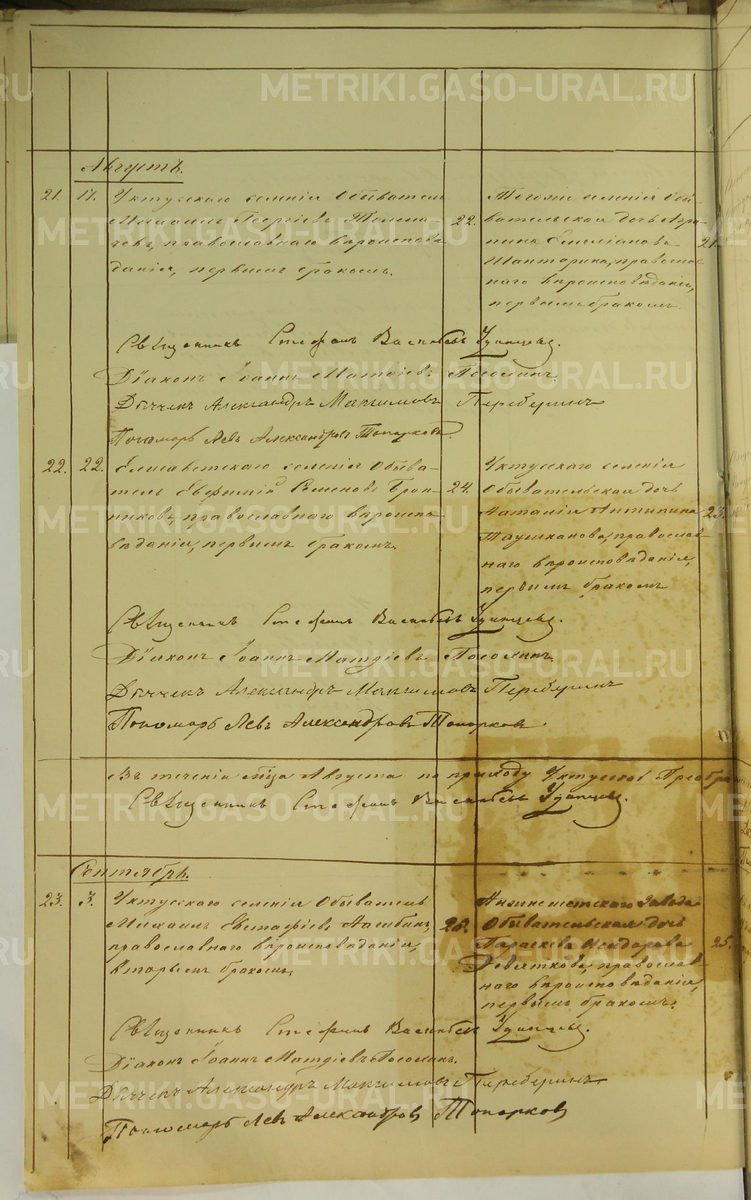 METRIKI.GASO-URAL.RU
Августъ.
21. 17. Уктусскаго селенія Обыватель
Михаилъ Георгіевъ
православнаго вѣроисповѣ
данія, первымъ бракомъ.
22.
селенія Обы
вательская дочь Агри
пина Емеліанова
православ
наго вѣроисповѣданія,
первымъ бракомъ.
21.
Священникъ Стефанъ Васильевъ Удинцевъ.
Діаконъ Іоаннъ Матѳіевъ
Дьячекъ Александръ Максимовъ Переберинъ
Пономарь Левъ Александровъ Топорковъ.
22. 22. Елисаветскаго селенія Обыва
тель Евфимій Семеновъ Брон
никовъ, православнаго вѣроиспо
вѣданія, первымъ бракомъ.
24.
Уктусскаго селенія
Обывательская дочь
Наталія Антипина
Таушканова, православ
наго вѣроисповѣданія,
первымъ бракомъ
23.
Священникъ Стефанъ Васильевъ Удинцевъ.
Діаконъ Іоаннъ Матѳіевъ
Дьячекъ Александръ Максимовъ Переберинъ
Пономарь Левъ Александровъ Топорковъ.
Въ теченіи мѣсяца Августа по приходу Уктусской Преобра
Священникъ Стефанъ Васильевъ Удинцевъ.
Сентябрь.
23. 3. Уктусскаго селенія Обыватель
Михаилъ Евстафіевъ
православнаго вѣроисповѣданія,
вторымъ бракомъ.
26.
Нижнеисетскаго Завода
Обывательская дочь
Параскева Исидорова
Девяткова, православ
наго вѣроисповѣданія,
первымъ бракомъ.
25.
Священникъ Стефанъ Васильевъ Удинцевъ.
Діаконъ Іоаннъ Матѳіевъ
Дьячекъ Александръ Максимовъ Переберинъ
Пономарь Левъ Александровъ Топорковъ